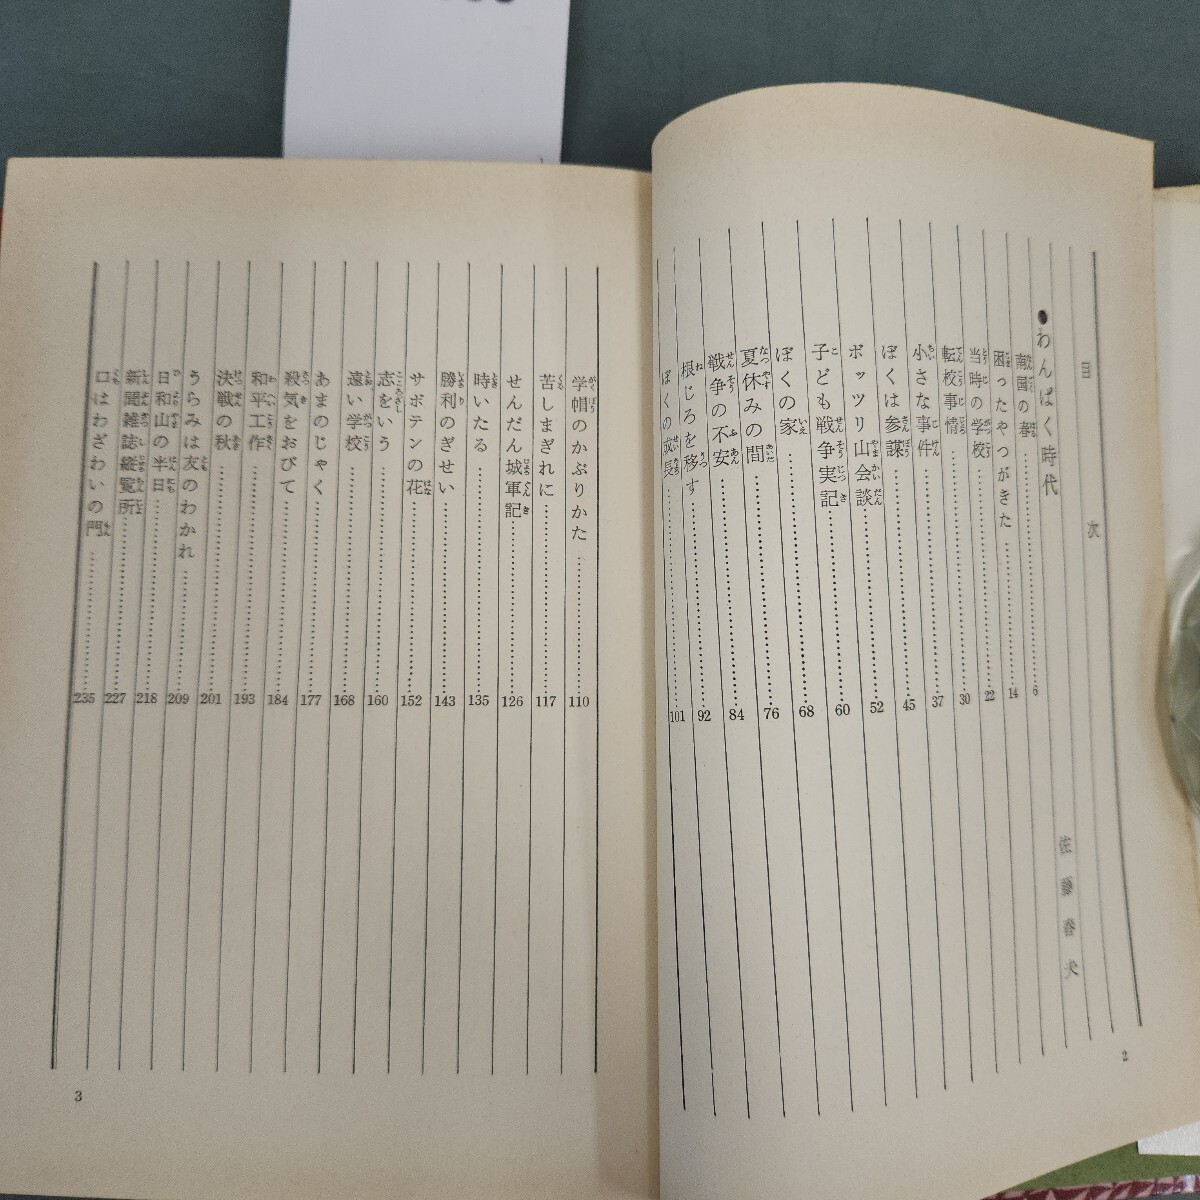 目次
●わんぱく時代
佐藤春夫
南国の春……6
困ったやつがきた……14
当時の学校……22
転校事情……30
小さな事件……37
ぼくは参謀……45
ポッツリ山会談……52
子ども戦争実記……60
ぼくの家……68
夏休みの間……76
戦争の不安……84
根じろを移す……92
ぼくの成長……101
2
学帽のかぶりかた……110
苦しまぎれに……117
せんだん城軍記……126
時いたる……135
勝利のぎせい……143
サボテンの花……152
志をいう……160
遠い学校……168
あまのじゃく……177
殺気をおびて……184
和平工作……193
決戦の秋……201
うらみは友のわかれ……209
日和山の半日……218
新聞雑誌縦覧所……227
口はわざわいの門……235
3